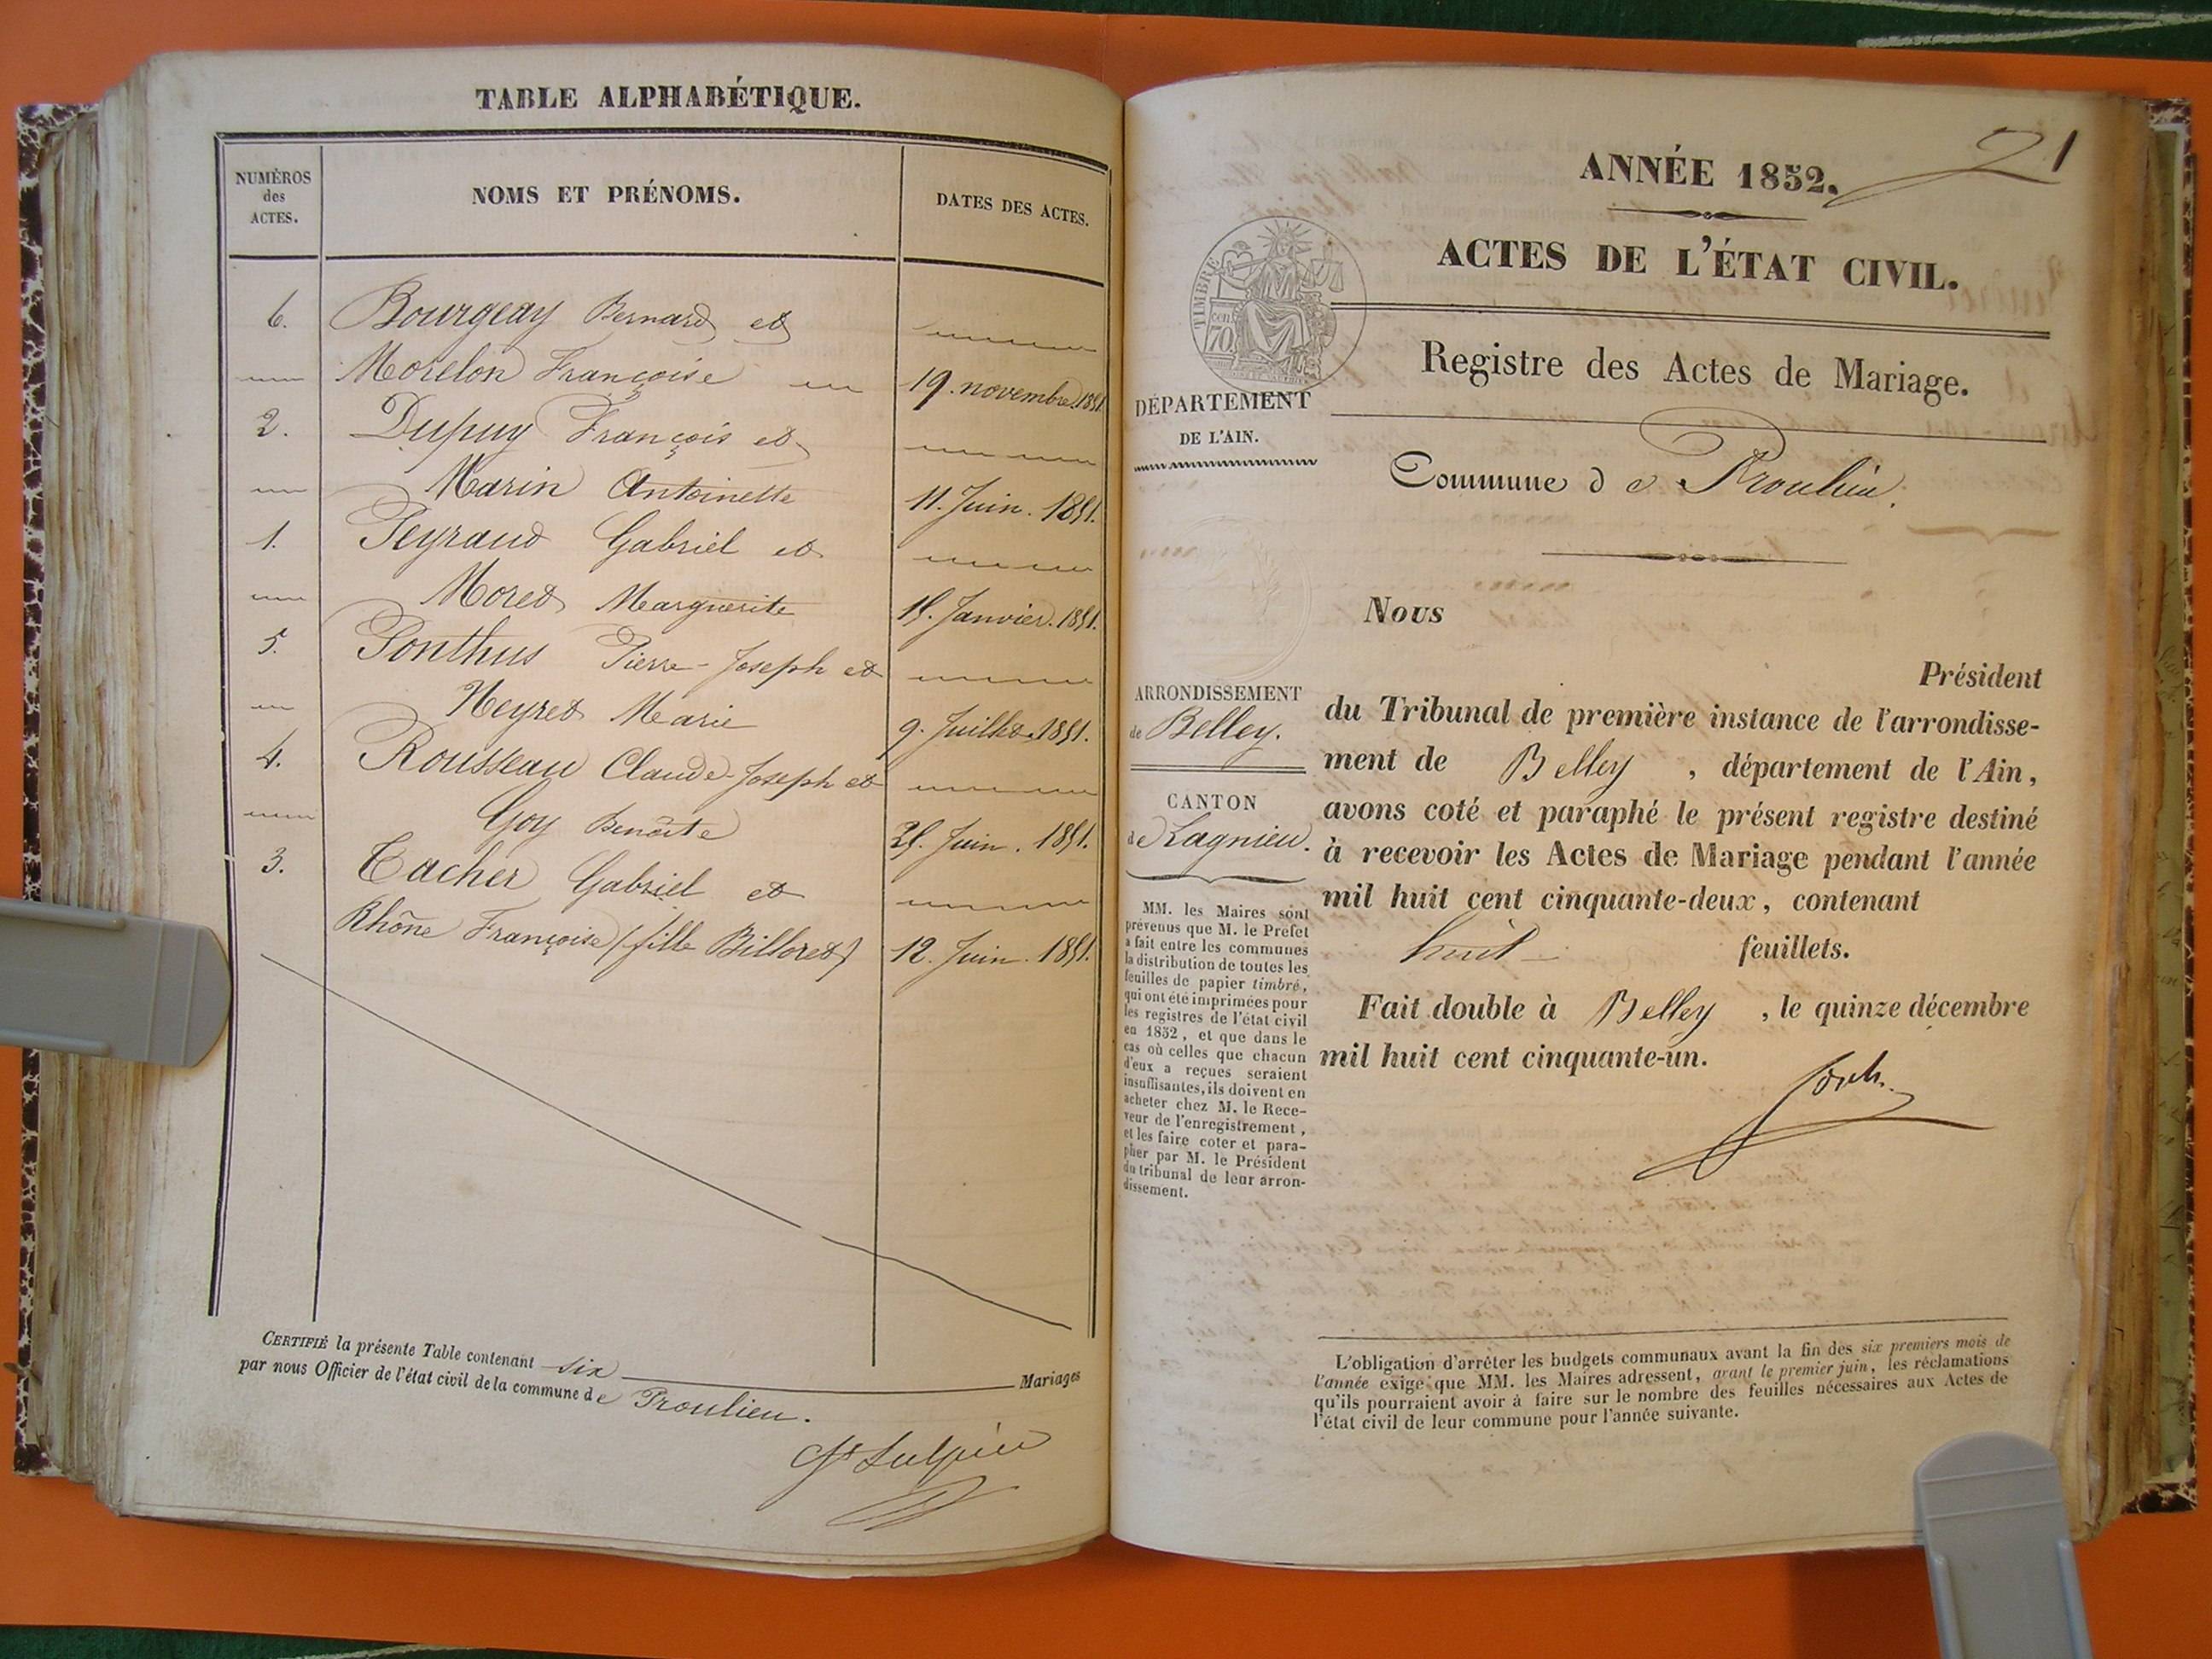 TABLE ALPHABÉTIQUE.
NUMÉROS des ACTES.
NOMS ET PRÉNOMS.
DATES DES ACTES.
6. Bourgeay Bernard et
Morelon Françoise 19. novembre 1851
2. Dupuy François et
Marin Antoinette 11. Juin. 1851.
1. Peyraud Gabriel et
Moret Marguerite 15. Janvier. 1851.
5. Ponthus Pierre-Joseph et
Neyret Marie 9. Juillet 1851.
4. Rousseau Claude-Joseph et
Goy Benoite 25. Juin. 1851.
3. Tacher Gabriel et
Rhône Françoise (fille Billoret) 12. Juin. 1851.
CERTIFIÉ la présente Table contenant six Mariages
par nous Officier de l'état civil de la commune de Proulieu.
St Sulpice
21
ANNÉE 1852.
ACTES DE L'ÉTAT CIVIL.
TIMBRE
70
Registre des Actes de Mariage.
DÉPARTEMENT
DE L'AIN.
Commune de Proulieu.
Nous
Président
ARRONDISSEMENT
de Belley.
CANTON
de Lagnieu.
du Tribunal de première instance de l'arrondisse-
ment de Belley, département de l'Ain,
avons coté et paraphé le présent registre destiné
à recevoir les Actes de Mariage pendant l'année
mil huit cent cinquante-deux, contenant
huit feuillets.
Fait double à Belley, le quinze décembre
mil huit cent cinquante-un.
MM. les Maires sont
prévenus que M. le Préfet
a fait entre les communes
la distribution de toutes les
feuilles de papier timbré,
qui ont été imprimées pour
les registres de l'état civil
en 1852, et que dans le
cas où celles que chacun
d'eux a reçues seraient
insuffisantes, ils doivent en
acheter chez M. le Rece-
veur de l'enregistrement,
et les faire coter et para-
pher par M. le Président
du tribunal de leur arron-
dissement.
L'obligation d'arrêter les budgets communaux avant la fin des six premiers mois de
l'année exige que MM. les Maires adressent, avant le premier juin, les réclamations
qu'ils pourraient avoir à faire sur le nombre des feuilles nécessaires aux Actes de
l'état civil de leur commune pour l'année suivante.